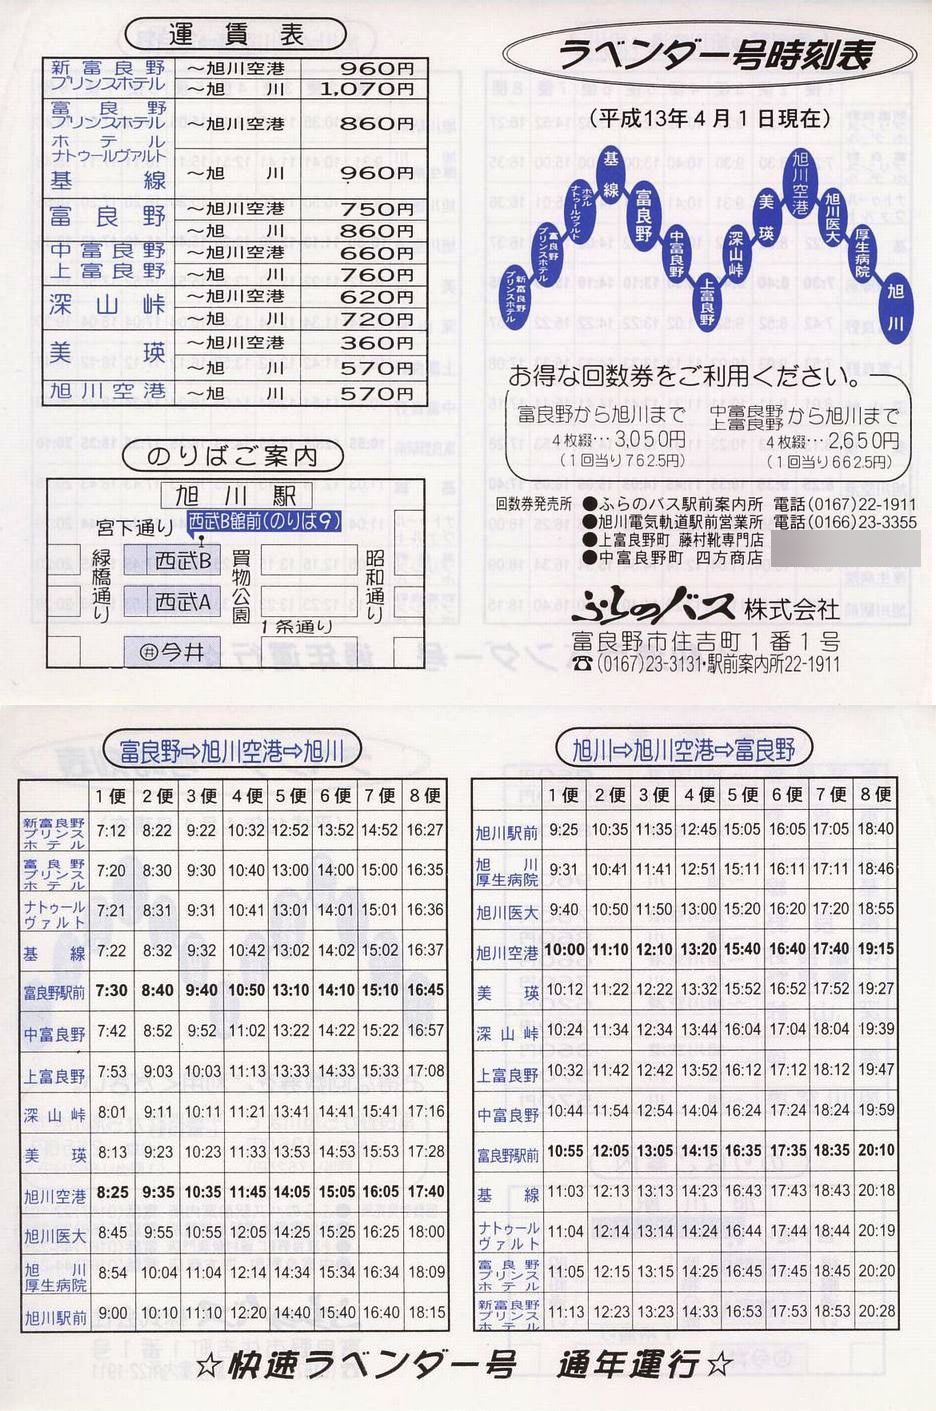 運賃表
新富良野プリンスホテル ～旭川空港 960円
～旭川 1,070円
富良野プリンスホテル ホテルナトゥールヴァルト 基線 ～旭川空港 860円
～旭川 960円
富良野 ～旭川空港 750円
～旭川 860円
中富良野 上富良野 ～旭川空港 660円
～旭川 760円
深山峠 ～旭川空港 620円
～旭川 720円
美瑛 ～旭川空港 360円
～旭川 570円
旭川空港 ～旭川 570円
のりばご案内
旭川駅
宮下通り 西武B館前(のりば9)
緑橋通り 西武B 買物公園 昭和通り
西武A
1条通り
㊌今井
ラベンダー号時刻表
(平成13年4月1日現在)
新富良野プリンスホテル
富良野プリンスホテル
ホテルナトゥールヴァルト
基線
富良野
中富良野
上富良野
深山峠
美瑛
旭川空港
旭川医大
厚生病院
旭川
お得な回数券をご利用ください。
富良野から旭川まで 中富良野 上富良野から旭川まで
4枚綴…3,050円 4枚綴…2,650円
(1回当り762.5円) (1回当り662.5円)
回数券発売所 ●ふらのバス駅前案内所 電話(0167)22-1911
●旭川電気軌道駅前営業所 電話(0166)23-3355
●上富良野町 藤村靴専門店
●中富良野町 四方商店
ふらのバス株式会社
富良野市住吉町1番1号
☎(0167)23-3131・駅前案内所22-1911
富良野⇨旭川空港⇨旭川
1便 2便 3便 4便 5便 6便 7便 8便
新富良野プリンスホテル 7:12 8:22 9:22 10:32 12:52 13:52 14:52 16:27
富良野プリンスホテル 7:20 8:30 9:30 10:40 13:00 14:00 15:00 16:35
ナトゥールヴァルト 7:21 8:31 9:31 10:41 13:01 14:01 15:01 16:36
基線 7:22 8:32 9:32 10:42 13:02 14:02 15:02 16:37
富良野駅前 7:30 8:40 9:40 10:50 13:10 14:10 15:10 16:45
中富良野 7:42 8:52 9:52 11:02 13:22 14:22 15:22 16:57
上富良野 7:53 9:03 10:03 11:13 13:33 14:33 15:33 17:08
深山峠 8:01 9:11 10:11 11:21 13:41 14:41 15:41 17:16
美瑛 8:13 9:23 10:23 11:33 13:53 14:53 15:53 17:28
旭川空港 8:25 9:35 10:35 11:45 14:05 15:05 16:05 17:40
旭川医大 8:45 9:55 10:55 12:05 14:25 15:25 16:25 18:00
旭川厚生病院 8:54 10:04 11:04 12:14 14:34 15:34 16:34 18:09
旭川駅前 9:00 10:10 11:10 12:20 14:40 15:40 16:40 18:15
旭川⇨旭川空港⇨富良野
1便 2便 3便 4便 5便 6便 7便 8便
旭川駅前 9:25 10:35 11:35 12:45 15:05 16:05 17:05 18:40
旭川厚生病院 9:31 10:41 11:41 12:51 15:11 16:11 17:11 18:46
旭川医大 9:40 10:50 11:50 13:00 15:20 16:20 17:20 18:55
旭川空港 10:00 11:10 12:10 13:20 15:40 16:40 17:40 19:15
美瑛 10:12 11:22 12:22 13:32 15:52 16:52 17:52 19:27
深山峠 10:24 11:34 12:34 13:44 16:04 17:04 18:04 19:39
上富良野 10:32 11:42 12:42 13:52 16:12 17:12 18:12 19:47
中富良野 10:44 11:54 12:54 14:04 16:24 17:24 18:24 19:59
富良野駅前 10:55 12:05 13:05 14:15 16:35 17:35 18:35 20:10
基線 11:03 12:13 13:13 14:23 16:43 17:43 18:43 20:18
ナトゥールヴァルト 11:04 12:14 13:14 14:24 16:44 17:44 18:44 20:19
富良野プリンスホテル 11:05 12:15 13:15 14:25 16:45 17:45 18:45 20:20
新富良野プリンスホテル 11:13 12:23 13:23 14:33 16:53 17:53 18:53 20:28
☆快速ラベンダー号 通年運行☆